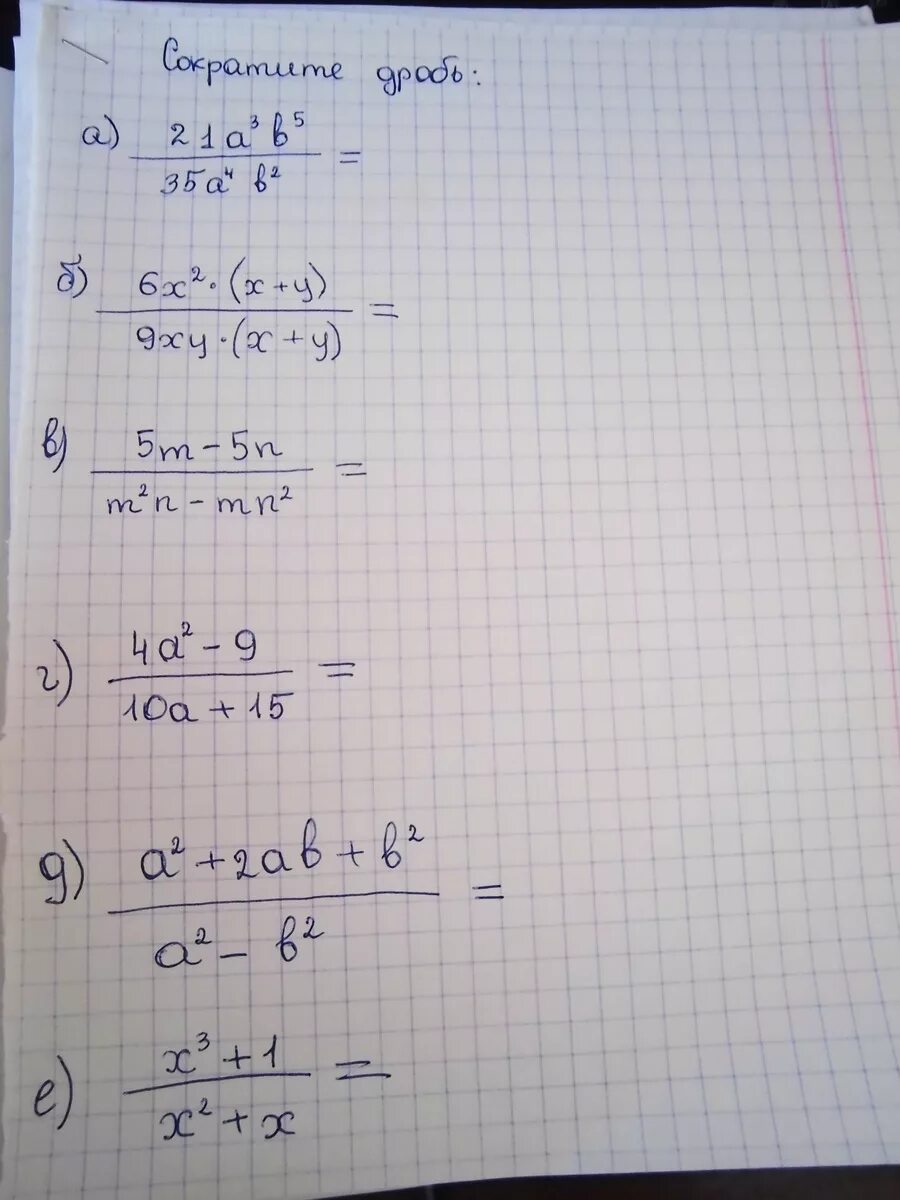 Сократите дробь:
а) 21a³b⁵
35a⁴b² =
б) 6x²·(x+y)
9xy·(x+y) =
в) 5m-5n
m²n-mn² =
г) 4a²-9
10a+15 =
д) a²+2ab+b²
a²-b² =
е) x³+1
x²+x =